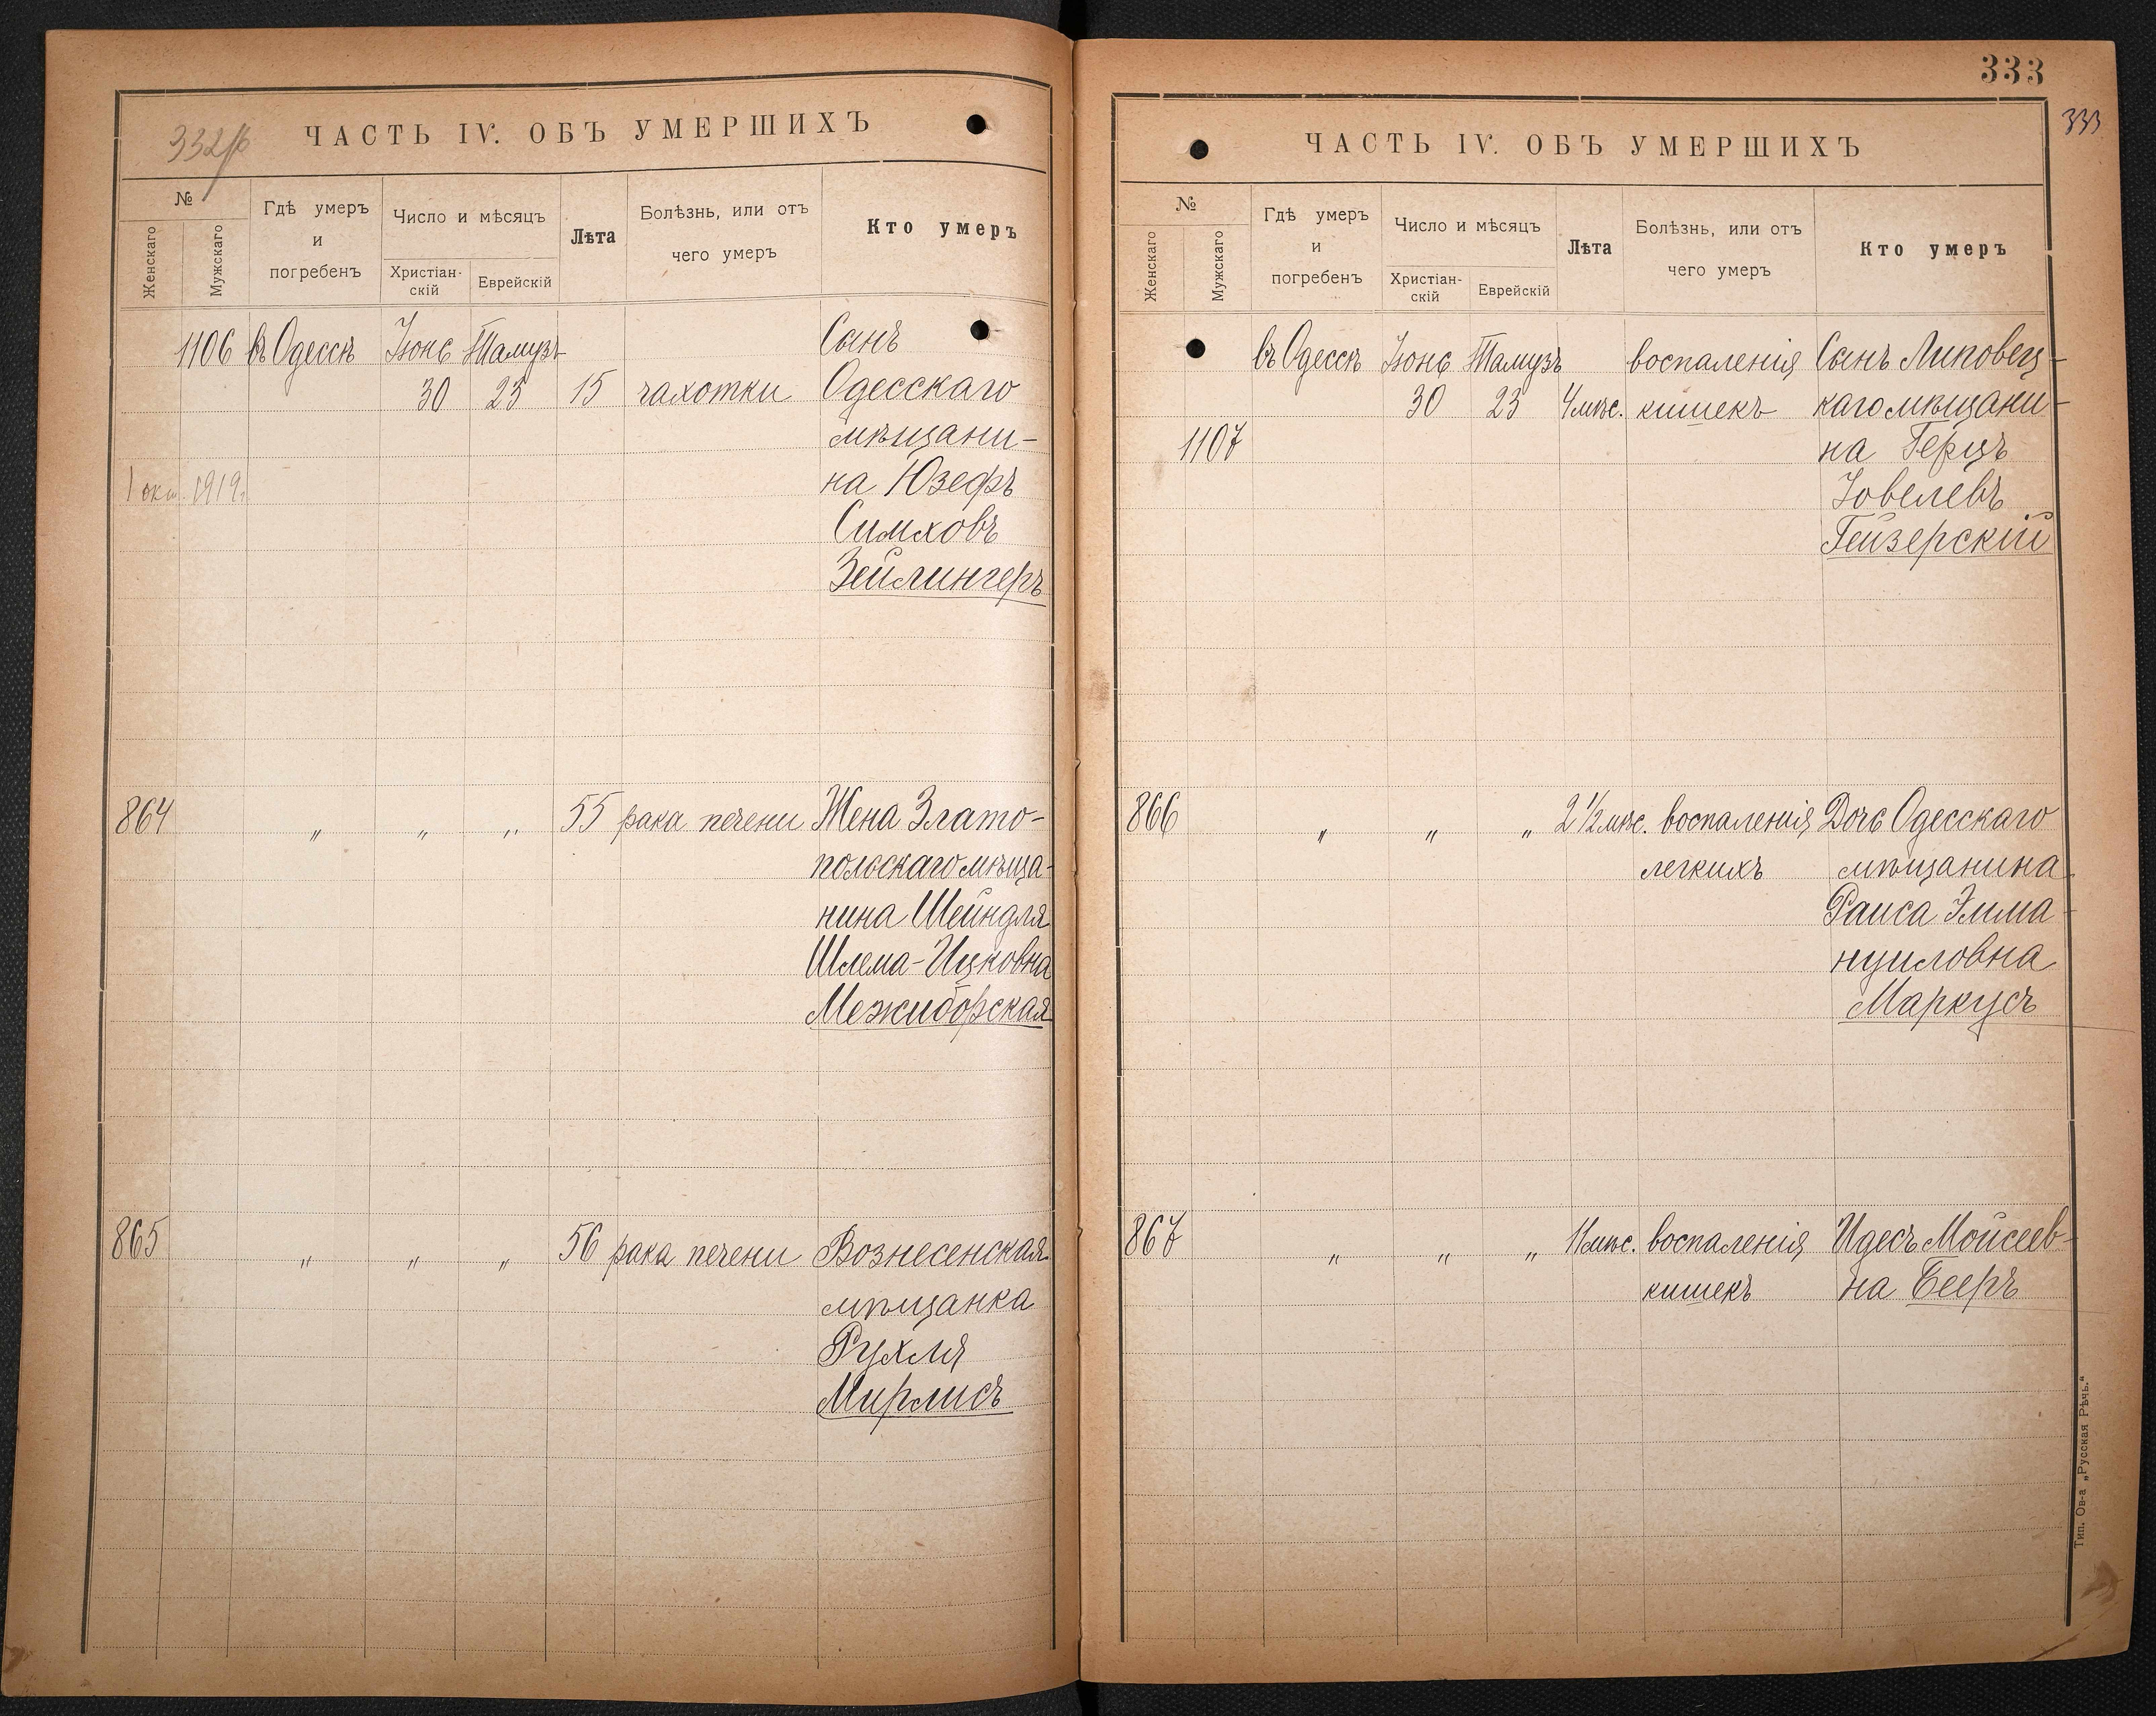 332/б
ЧАСТЬ IV. ОБЪ УМЕРШИХЪ
№
Женскаго
Мужскаго
Гдѣ умеръ
и
погребенъ
Число и мѣсяцъ
Христіан-
скій
Еврейскій
Лѣта
Болѣзнь, или отъ
чего умеръ
Кто умеръ
1106 въ Одессѣ Іюнь Тамузъ Сынъ
30 23 15 чахотки Одесскаго
мѣщани-
1 окт. 1919г. на Юзефъ
Симховъ
Зейлингеръ
864 „ „ „ 55 рака печени Жена Злато-
польскаго мѣща-
нина Шейндля
Шлема-Ицковна
Межиборская
865 „ „ „ 56 рака печени Вознесенская
мѣщанка
Рухля
Мирлисъ
333
333
ЧАСТЬ IV. ОБЪ УМЕРШИХЪ
№
Женскаго
Мужскаго
Гдѣ умеръ
и
погребенъ
Число и мѣсяцъ
Христіан-
скій
Еврейскій
Лѣта
Болѣзнь, или отъ
чего умеръ
Кто умеръ
въ Одессѣ Іюнь Тамузъ воспаленія Сынъ Липовец-
30 23 4 мѣс. кишекъ каго мѣщани-
1107 на Герцъ
Іовелевъ
Гейзерскій
866 „ „ „ 2 1/2 мѣс. воспаленія Дочь Одесскаго
легкихъ мѣщанина
Раиса Эмма-
нуиловна
Маркусъ
867 „ „ „ 11 мѣс. воспаленія Идесъ Мойсеев-
кишекъ на Бееръ
Тип. Ов-а „Русская Рѣчь.“